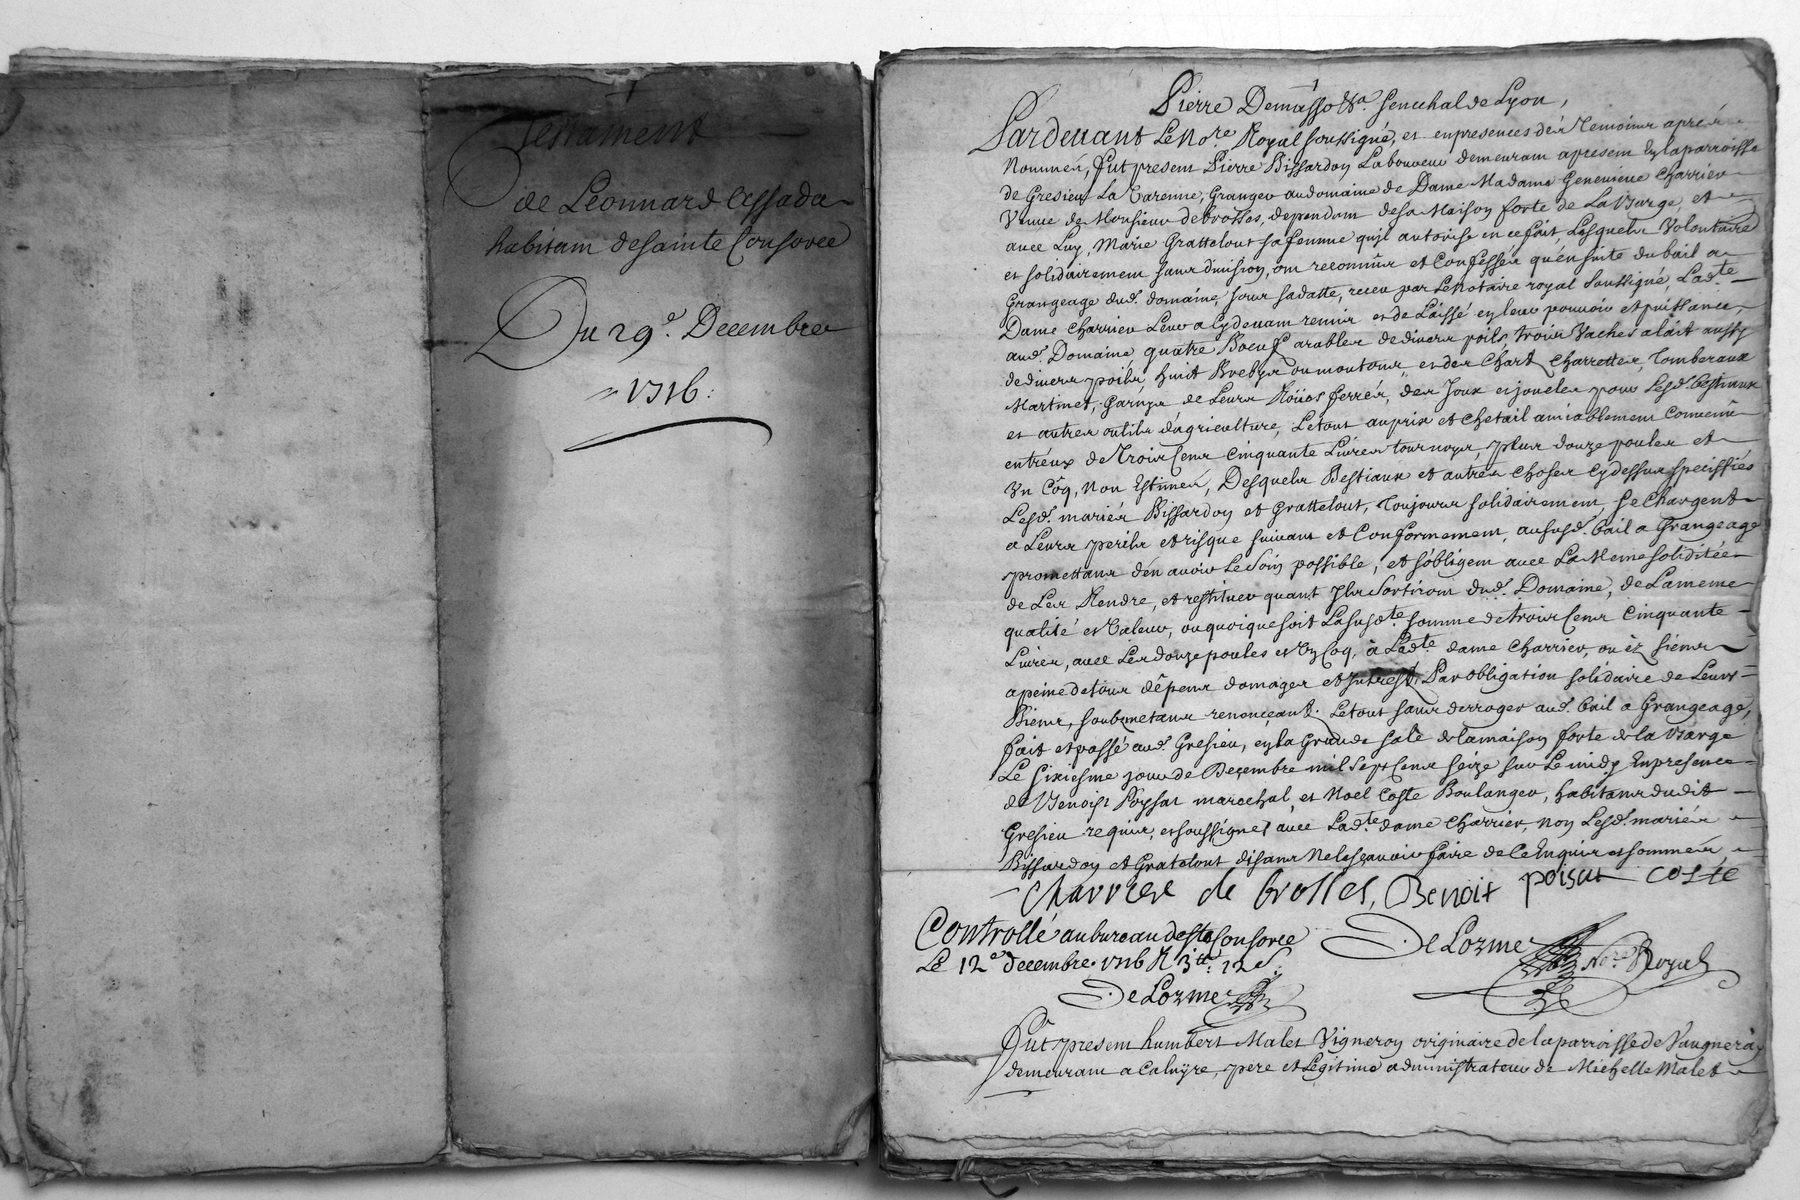 Testament
de Leonnard Cessada
habitam de sainte Consorce
Du 29e. Decembre
1716.
Pierre Demasso &a. Senechal de Lyon,
Pardevant Le No.re Royal soussigné, et en presences des Temoins aprés
Nommés, fut present Pierre Bissardon Laboureur demeuram apresem En la parroisse
de Gresieu La Varenne, Granger au domaine de Dame Madame Genevieve Charrier
Veuve de Monsieur de Brosses, dependam de sa Maison forte de La Barge, et
avec Luy, Marie Grattelout sa femme qu'jl autorise en ce fait Lesquels Volontaire
et solidairement sans division, ont reconnus et Confessés qu'ensuite du bail a
Grangeage dud. domaine, sour sa datte, receu par Le Notaire royal Soussigné, Lad.te
Dame Charrier Leur a Cydevam remis et de Laissé en leur pouvoir et puissance,
aud. Domaine quatre Boeufs arables de divers poils, trois Vaches a lait aussy
de divers poils, huit Brebys ou moutons, et des Chars, Charrettes, Tomberaux
Martinet, garnys de Leurs Roües ferrés, des Joux et joucles pour Lesd. bestiaux
et autres outils d'agriculture, Le tout au prix et Chetail amiablement Convenu
entr'eux de Trois Cens Cinquante Livres tournoys, plus douze poules et
Vn Côq, Non Estimés, Desquels Bestiaux et autres choses Cydessus speciffiés
Lesd. mariés Bissardon et Grattelout, Toujours solidairement, se Chargent
a Leurs perils et risque suivant et Conformement, au susd. bail a Grangeage
promettans d'en avoir Le Soin possible, et s'obligem avec La Meme solidité
de Les Rendre, et restituer quant Jls Sortirom dud. Domaine, de La meme
qualité et Valeur, ou quoique soit La susd.te somme de trois Cens Cinquante
Livres, avec Les douze poules et Vn Coq, à Lad.te dame Charrier, ou éz siens
a peine de tous dêpens domages et Intrest, Par obligation solidaire de Leurs
Biens, soubmetans renonçeant. Le tout sans derroger aud. bail a Grangeage,
fait et passé aud. Gresieu, en la Grande sale de la maison forte de la Barge
Le sixiesme jour de Decembre mil sept Cens seize sur Le midy En presence
de Benoist Poysat marechal, et Noel Coste Boulanger, habitans dudit
Gresieu requis, et soussignés avec Lad.te dame Charrier, non Lesd. mariés
Bissardon et Gratelout disans Ne Le sçavoir faire de Ce Enquis et sommés
Charrier de Brosses, Benoit poisat Coste
Controllé au bureau de Ste Consorce
Le 12e decembre 1716 R 3tt. 12 s.
De Lorme
De Lorme No.re Royal
Fût presem humbert Malet Vigneron originaire de la parroisse de Vaugneray
demeuram a Caluyre, pere et Legitime administrateur de Michelle Malet